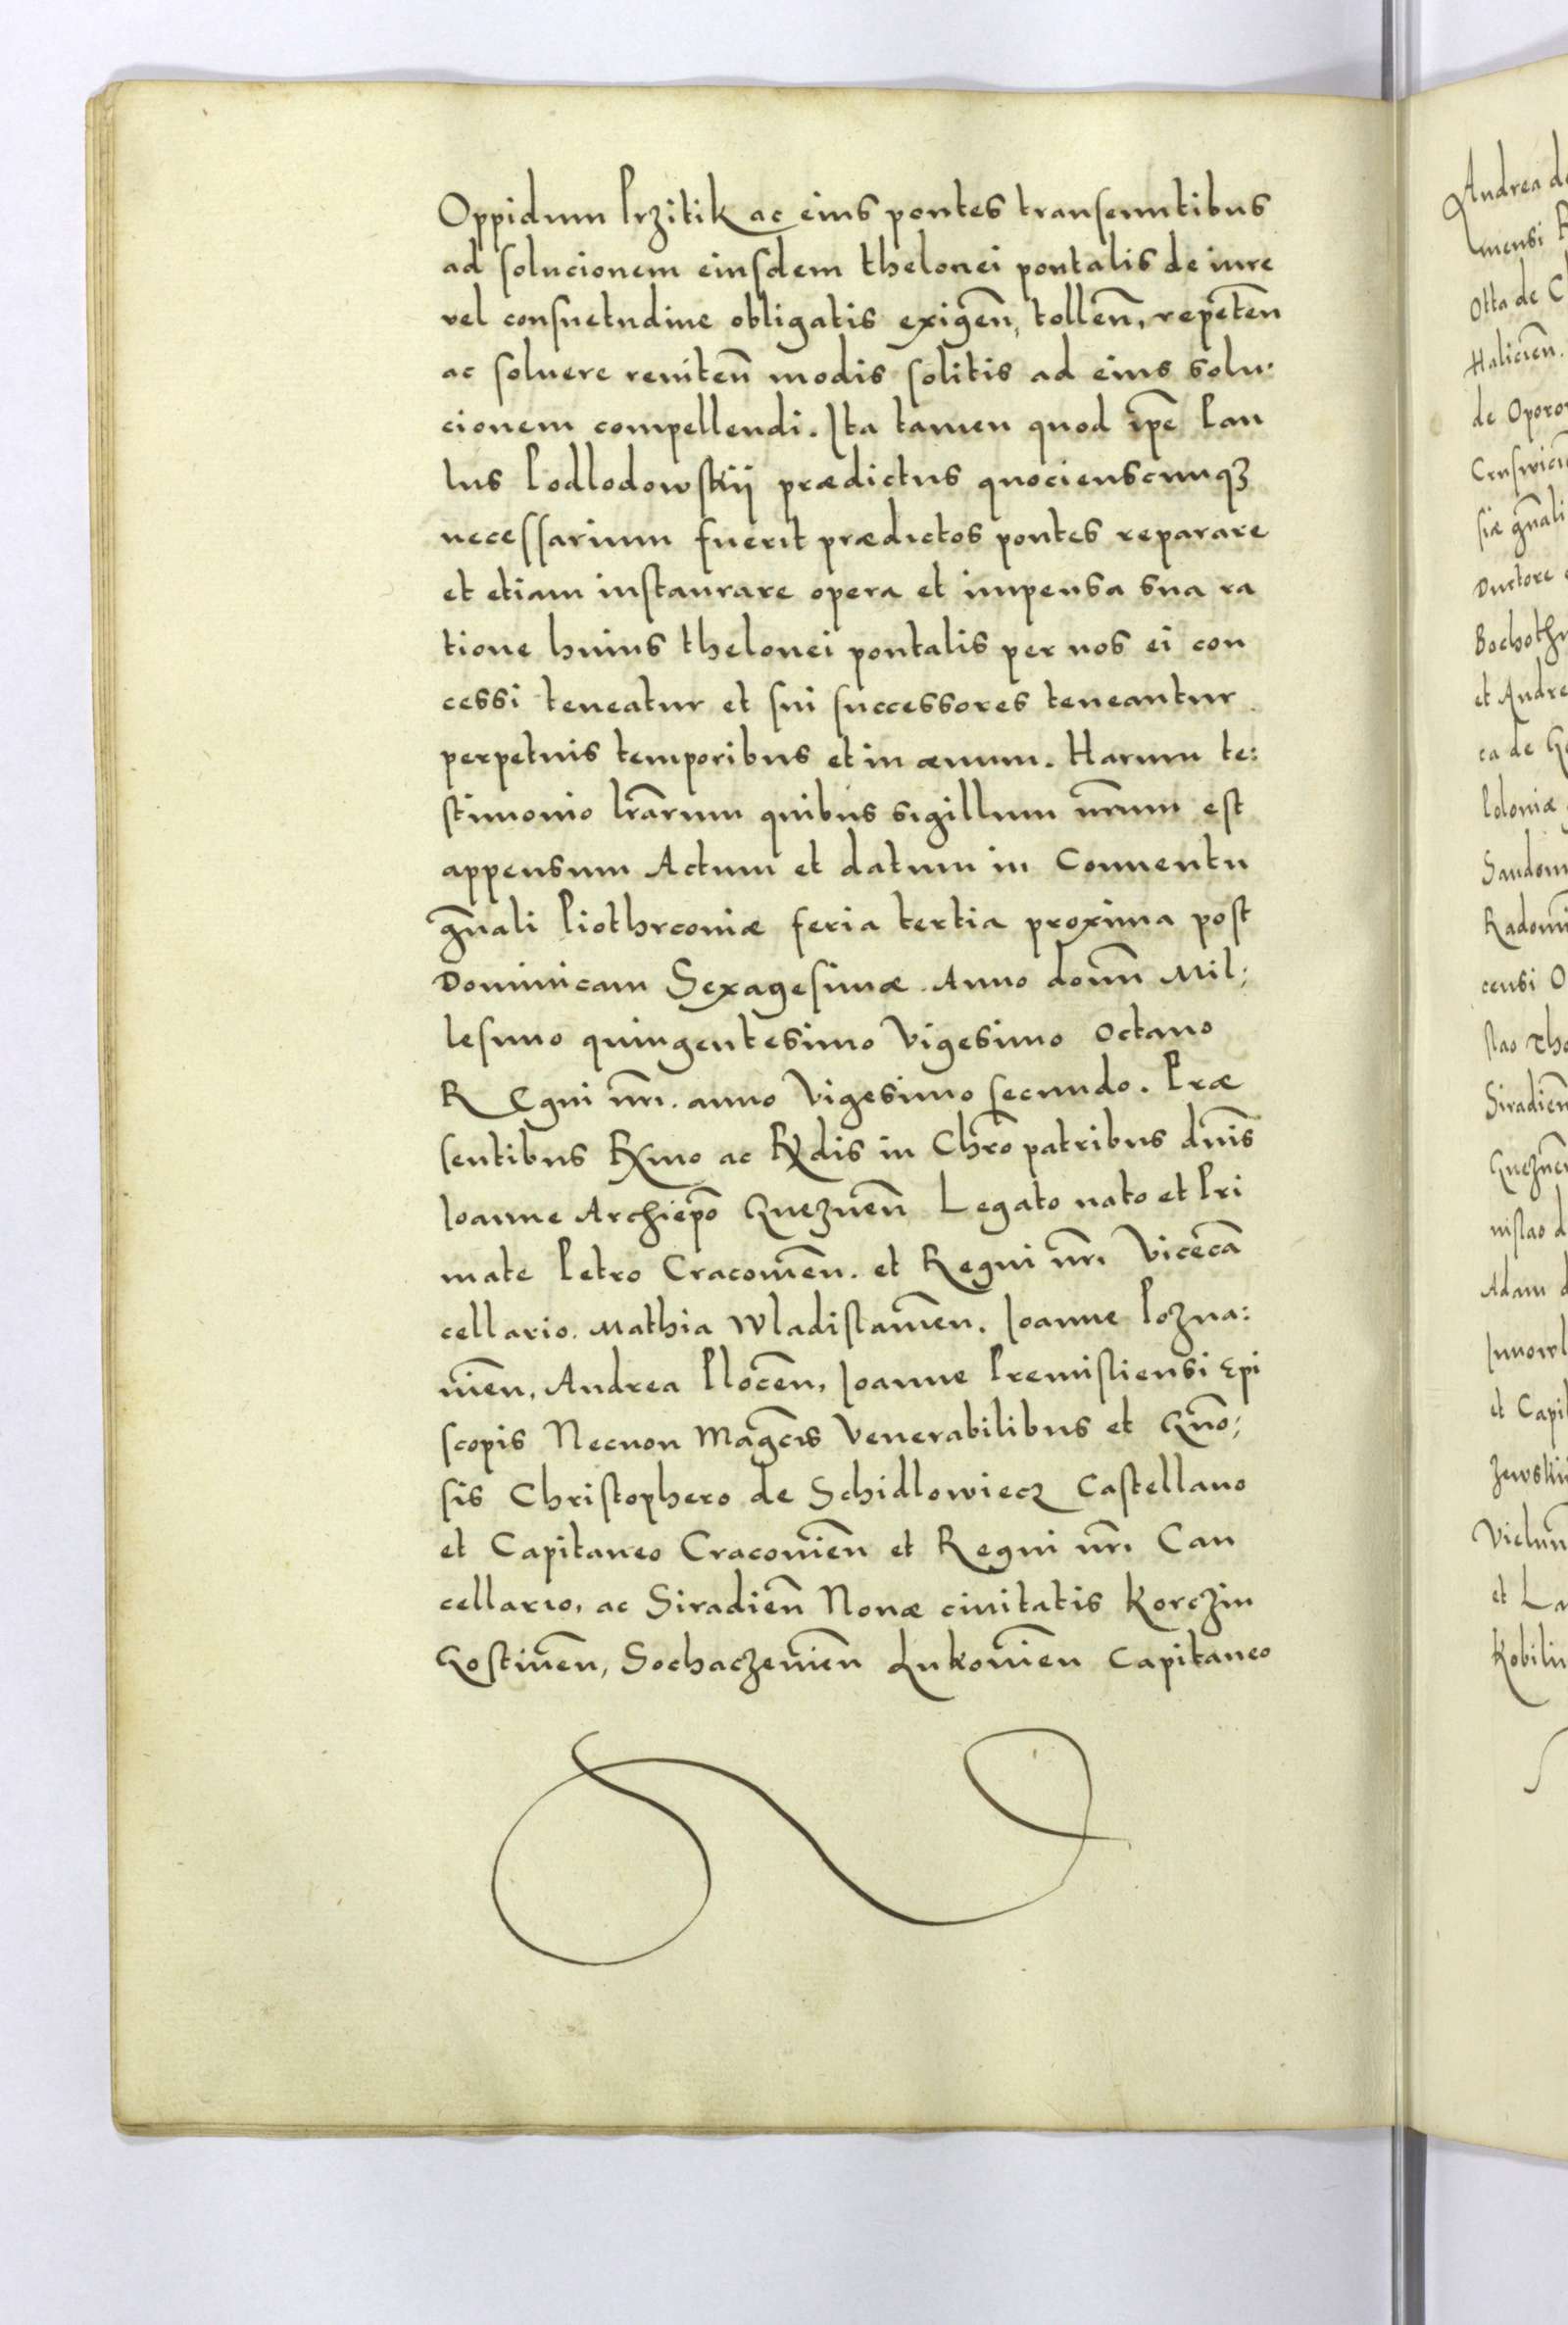 Oppidum Przitik ac eius pontes transeuntibus
ad solucionem eiusdem thelonei pontalis de iure
vel consuetudine obligatis exigen̄, tollen̄, repeten̄
ac soluere reniten̄ modis solitis ad eius solu-
cionem compellendi. Ita tamen quod ip̄e Pau
lus Podlodowskij prædictus quocienscunqꝫ
necessarium fuerit prædictos pontes reparare
et etiam instaurare opera et impensa sua ra
tione huius thelonei pontalis per nos ei con
cessi teneatur et sui successores teneantur
perpetuis temporibus et in æuum. Harum te:
stimonio lr̄arum quibus sigillum nr̄um est
appensum Actum et datum in Conuentu
gn̄ali Piothrcouiæ feria tertia proxima post
Dominicam Sexagesimæ. Anno domn̄ Mil:
lesimo quingentesimo Vigesimo Octauo
REgni nr̄i. anno Vigesimo secundo. Præ
sentibus Rxmo ac Rxdis in Chr̄o patribus dn̄is
Ioanne Archiep̄o Gneznen̄ Legato nato et Pri
mate Petro Cracouien̄. et Regni nr̄i Vicecā
cellario. Mathia Wladislauien̄. Ioanne Pozna:
nien̄, Andrea Plocen̄, Ioanne Premisliensi Epi
scopis Necnon Mag̅cis Venerabilibus et Gn̄o:
sis Christophero de Schidlowiecz Castellano
et Capitaneo Cracouien̄ et Regni nr̄i Can
cellario, ac Siradien̄ Nouæ ciuitatis Korczin
Gostinen̄, Sochaczeuien̄ Lukouien̄ Capitaneo
Andrea de
Otta de
Halicien̄.
de Oporo
siæ gn̄ali
Ductore
et Andre
ca de
Poloniæ
Sandom
Radom
censi
Siradien̄
Adam
et Capi
et La
Kobilin